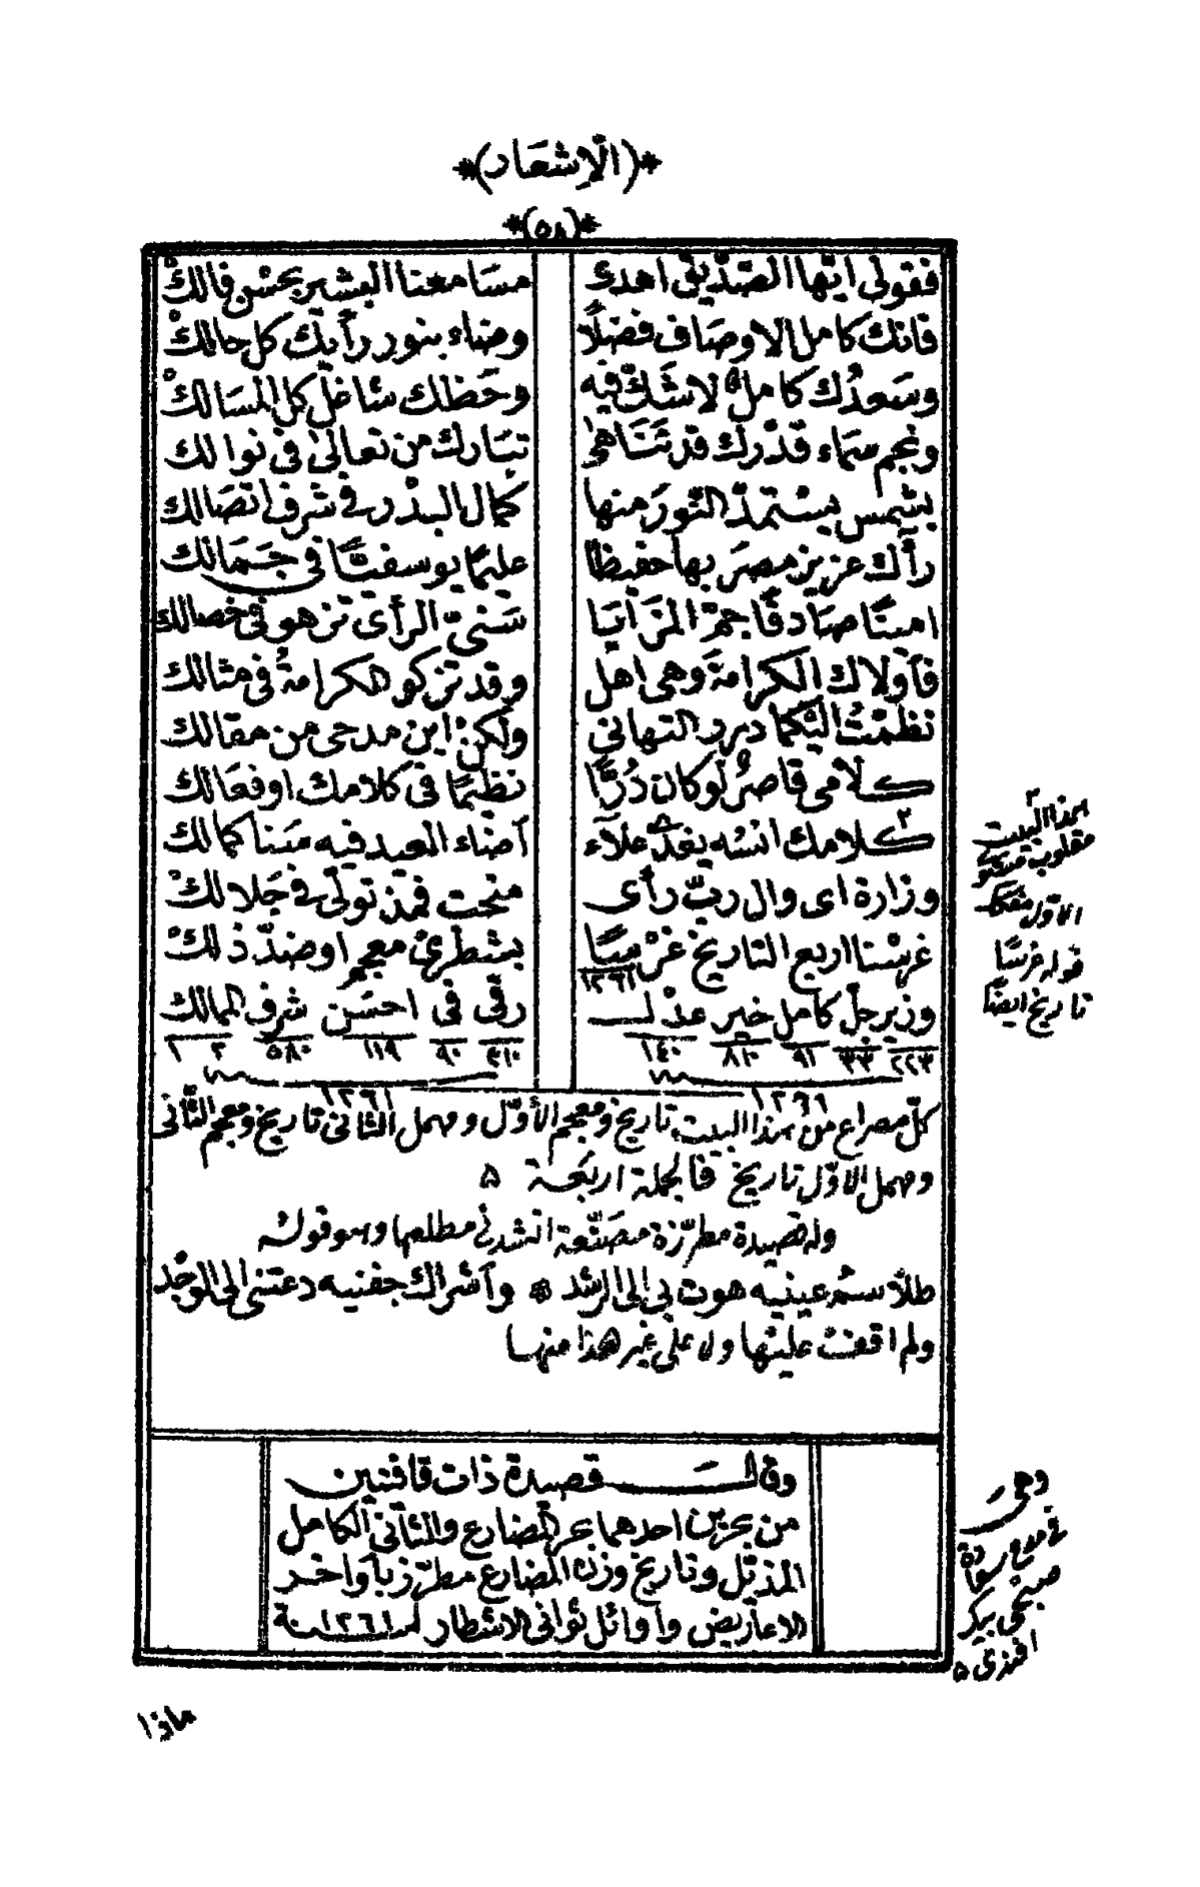 *(الاشعار)*
*(٥٨)*
فقولى ايّها الصّدّيق اهدى مسامعنا البشير بحسْن فالكْ
فانك كامل الاوصاف فضلًا وضاء بنور رأيك كل حالكْ
وسَعدُك كامل لا شكّ فيه وحَظك شاغل كل المسَالكْ
ونجم سماء قدْرك قد تنَاهى تبَارك من تعالىٰ فى نوالك
بشمس يستمدّ النّورَ منها كمال البدْر فى شرف اتصَالك
رأك عزيز مصرَ بها حفيظًا عليمًا يوسفيًّا فى جَمَالك
امينًا صادقًا جمّ المزَايَا سَنىّ الرأى تزهو فى خصالك
فأولاك الكرامةَ وهى اهل وقد تزكو الكرامةُ فى مثالك
نظمْتُ اليْكما درر التهانى ولكن اين مدحى من مقالك
كلامى قاصرٌ لو كان دُرًّا نظيمًا فى كلامك اوفعَالك
كلامك انسه يغد علاء اضاء العيد فيه سَنا كمالك
وزارة اى وال ربّ رأى منحت فمذ تولّى فى جَلالكْ
غرسْنا اربع التاريخ غرْسًا بشطرىْ معجم اوضدّ ذلكْ
١٢٦١
وزير جلّ كامل خير عدْل رقى فى احسَن شرف الممالك
٢٢٣ ٣٣ ٩١ ٨١٠ ١٤٠ ٣١٠ ٩٠ ١١٩ ٥٨٠
١٢٦١ ١٢٦١
كلّ مصراع من هذا البيت تاريخ ومعجم الأوّل ومهمل الثانى تاريخ ومعجم الثّانى
ومهمل الاوّل تاريخ فالجملة اربعَة ۵
وله قصيدة مطرّزة مصَنّعة انشدنى مطلعها وهو قوله
طلاَ سمُ عينيه هوت بى الى الرشد * وأشراك جفنيه دعتنى الى الوجْد
ولم اقف عليْها ولا على غير هذا منها
وقال قصيدة ذات قافتين
من بحرين احدهما بحر المضارع والثانى الكامل
المذيّل وتاريخ وزن المضارع مطرّز باواخر
الاعاريض واوائل ثوانى الاشطار ١٢٦١ سنة
٢ هذا البيت
مقلوب
الاوّل
قوله غرسًا
تاريخ ايضًا
وهى
فى مدح
صبحى بيك
افندى ۵
ماذا